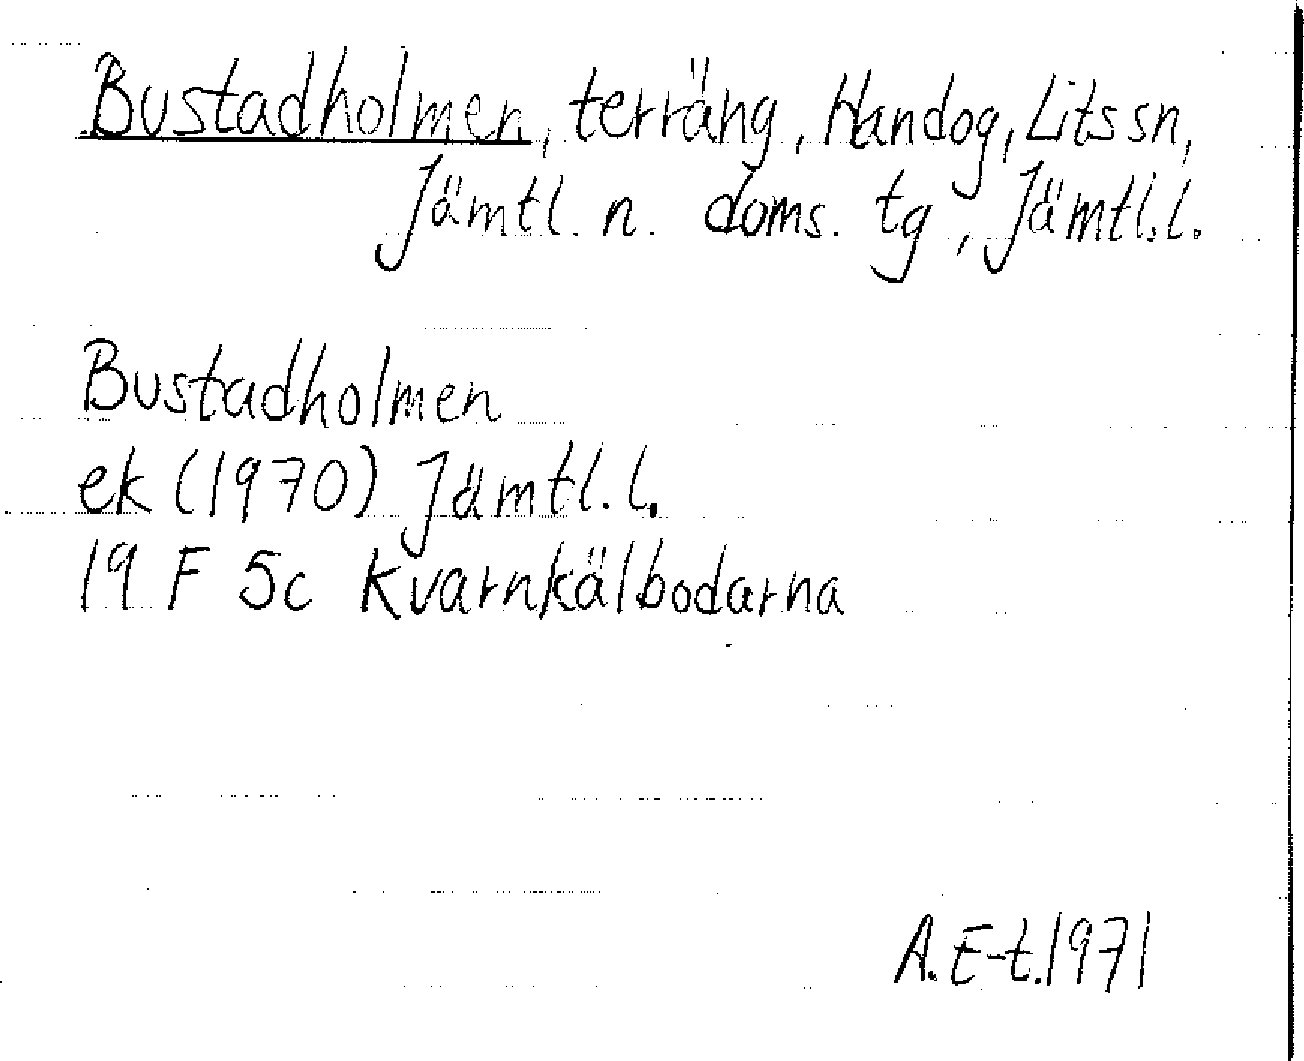 Bustadholmen, terräng, Handog, Lits sn,
Jämtl. n. doms. tg, Jämtl. l.
Bustadholmen
ek (1970) Jämtl. l.
19 F 5c Kvarnkälbodarna
A. E-t. 1971